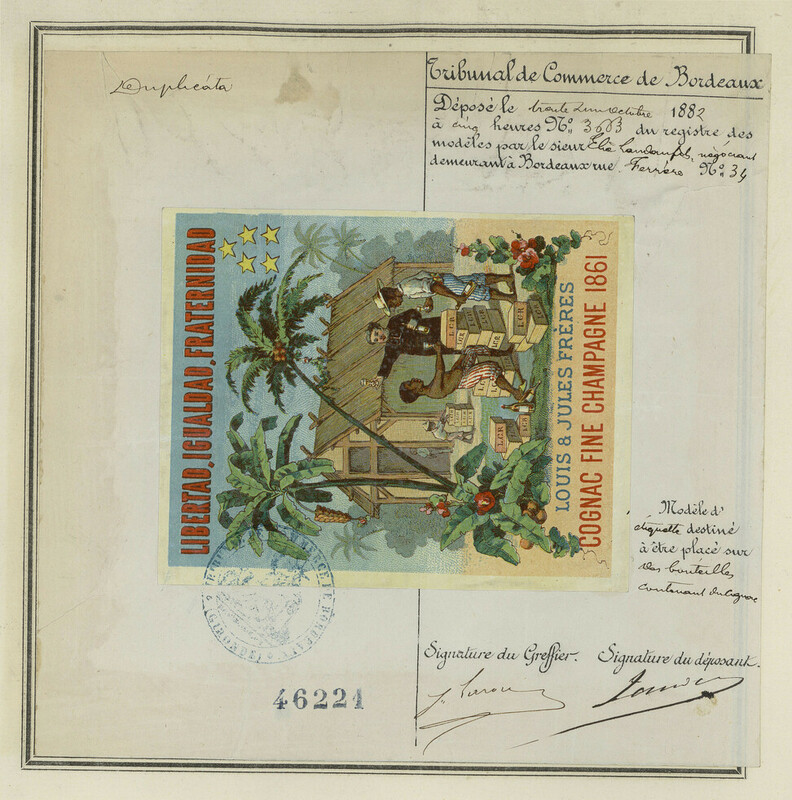 Duplicáta
Tribunal de Commerce de Bordeaux
Déposé le trente un octobre 1882
à cinq heures No. 3663 du registre des
modèles par le sieur Elie négociant
demeurant à Bordeaux rue Ferrère No. 34
LIBERTAD, IGUALDAD, FRATERNIDAD
LCR
LCR
LCR
LCR
LCR
LOUIS & JULES FRÈRES
COGNAC FINE CHAMPAGNE 1861
Modèle d'
étiquette destiné
à être placé sur
des bouteilles
contenant du cognac
COMMERCE DE BORDEAUX
(GIRONDE)
Signature du Greffier. Signature du déposant.
46221